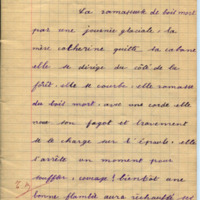 La ramasseuse de bois mort
par une journée glaciale, la
mère catherine quitte sa cabane
elle se dirige du côté de la
forêt. elle se courbe, elle ramasse
du bois mort, avec une corde elle
noue son fagot et bravement
se le charge sur l'épaule. elle
s'arrête un moment pour
souffler, courage! bientôt une
bonne flambée aura réchauffé ses